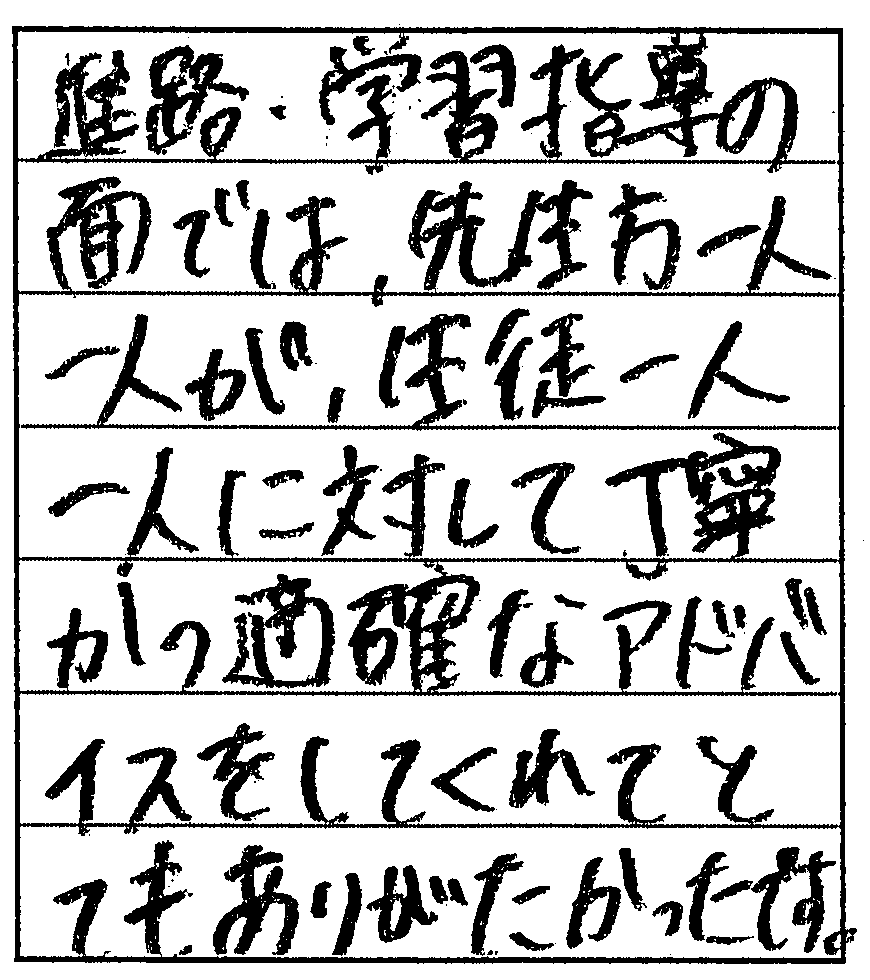 進路・学習指導の
面では、先生方一人
一人が、生徒一人
一人に対して丁寧
かつ適確なアドバ
イスをしてくれてと
てもありがたかったです。